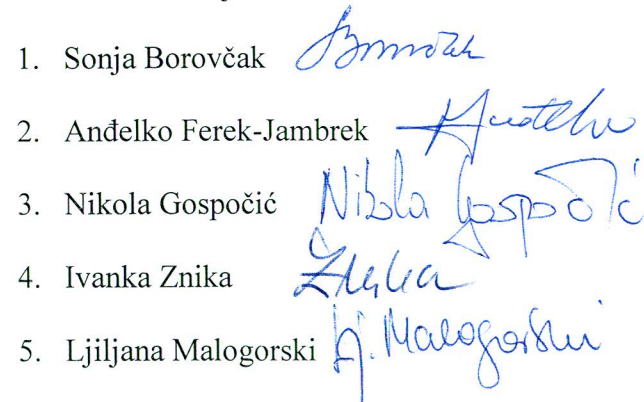 1. Sonja Borovčak Borovčak
2. Anđelko Ferek-Jambrek
3. Nikola Gospočić Nikola Gospočić
4. Ivanka Znika Znika
5. Ljiljana Malogorski Lj. Malogorski